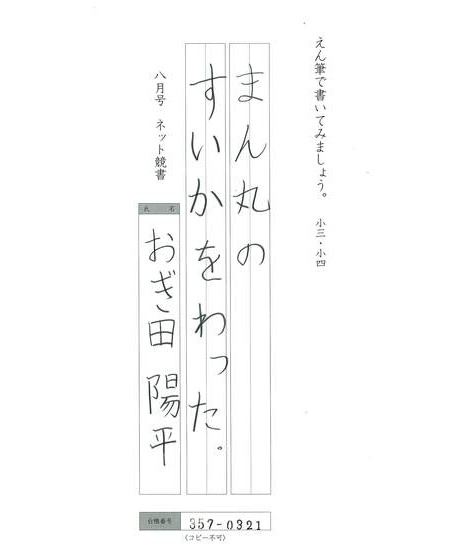 えん筆で書いてみましょう。 小三・小四
まん丸の
すいかをわった。
八月号 ネット競書
氏名
おぎ田 陽平
会積番号 357-0321
(コピー不可)